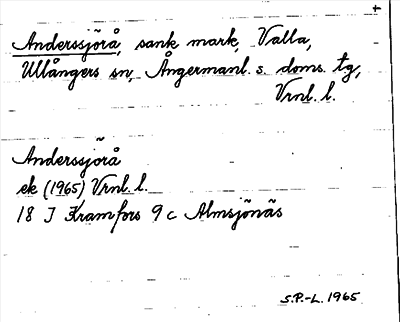 +
Anderssjörå, sank mark, Valla,
Ullångers sn, Ångermanl. s. doms. tg,
Vrnl. l.
Anderssjörå
ek (1965) Vrnl. l.
18 I Kramfors 9 c Almsjönäs
S.P.-L. 1965